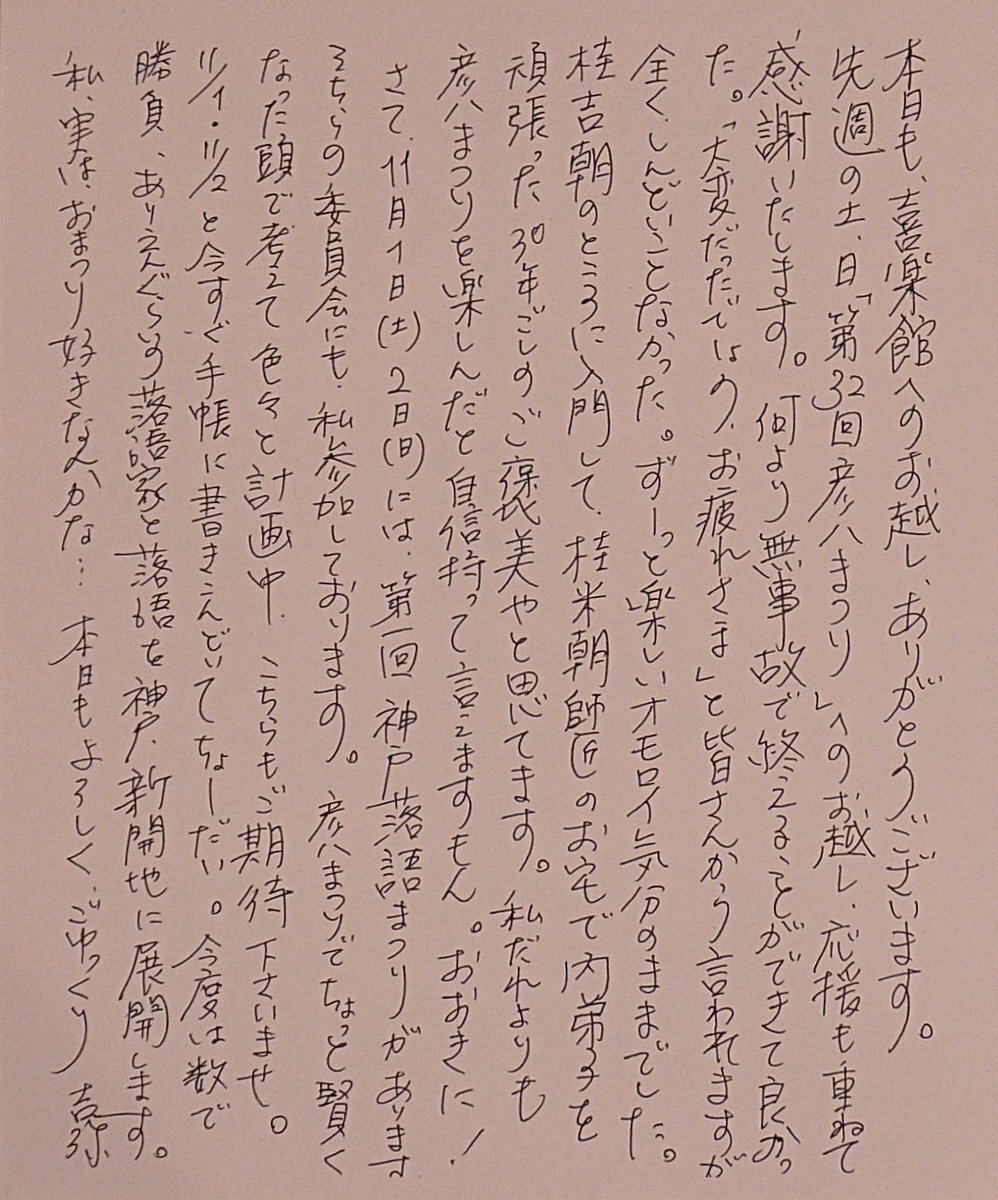 本日も、喜楽館へのお越し、ありがとうございます。
先週の土、日「第32回彦八まつり」へのお越し、応援も重ねて
感謝いたします。何より無事故で終えることができて良かっ
た。「大変だったでしょう、お疲れさま」と皆さんから言われますが
全くしんどいことなかった。ずーっと楽しいオモロイ気分のままでした。
桂吉朝のところに入門して、桂米朝師匠のお宅で内弟子を
頑張った30年ごしのご褒美やと思てます。私だれよりも
彦八まつりを楽しんだと自信持って言えますもん。おおきに！
さて、11月1日(土)2日(日)には、第一回神戸落語まつりがあります
そちらの委員会にも、私参加しております。彦八まつりでちょっと賢く
なった頭で考えて色々と計画中、こちらもご期待下さいませ。
11/1・11/2と今すぐ手帳に書きこんどいてちょーだい。今度は数で
勝負、ありえんぐらいの落語家と落語を神戸新開地に展開します。
私、実は、おまつり好きなんかな… 本日もよろしく、ごゆっくり 吉弥